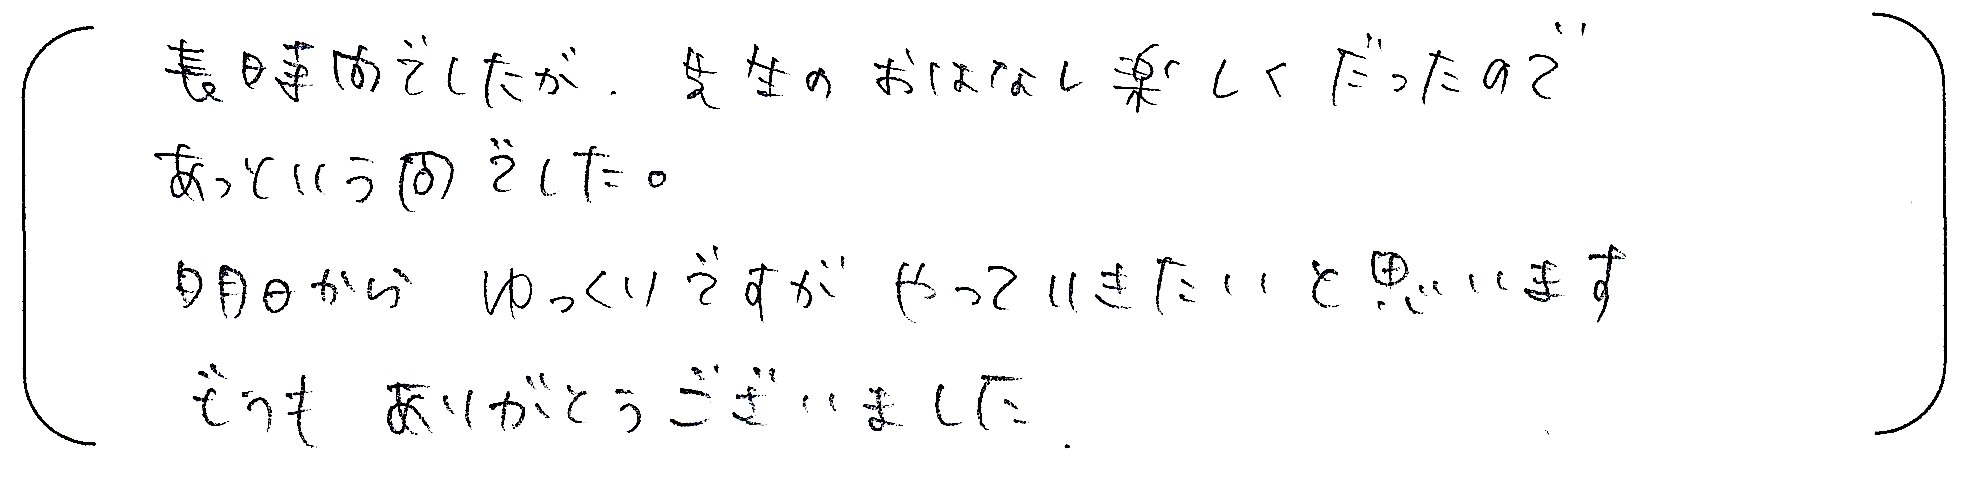 長時間でしたが、先生のおはなし楽しくだったので
あっという間でした。
明日から ゆっくりですが やっていきたいと思います
どうも ありがとうございました.